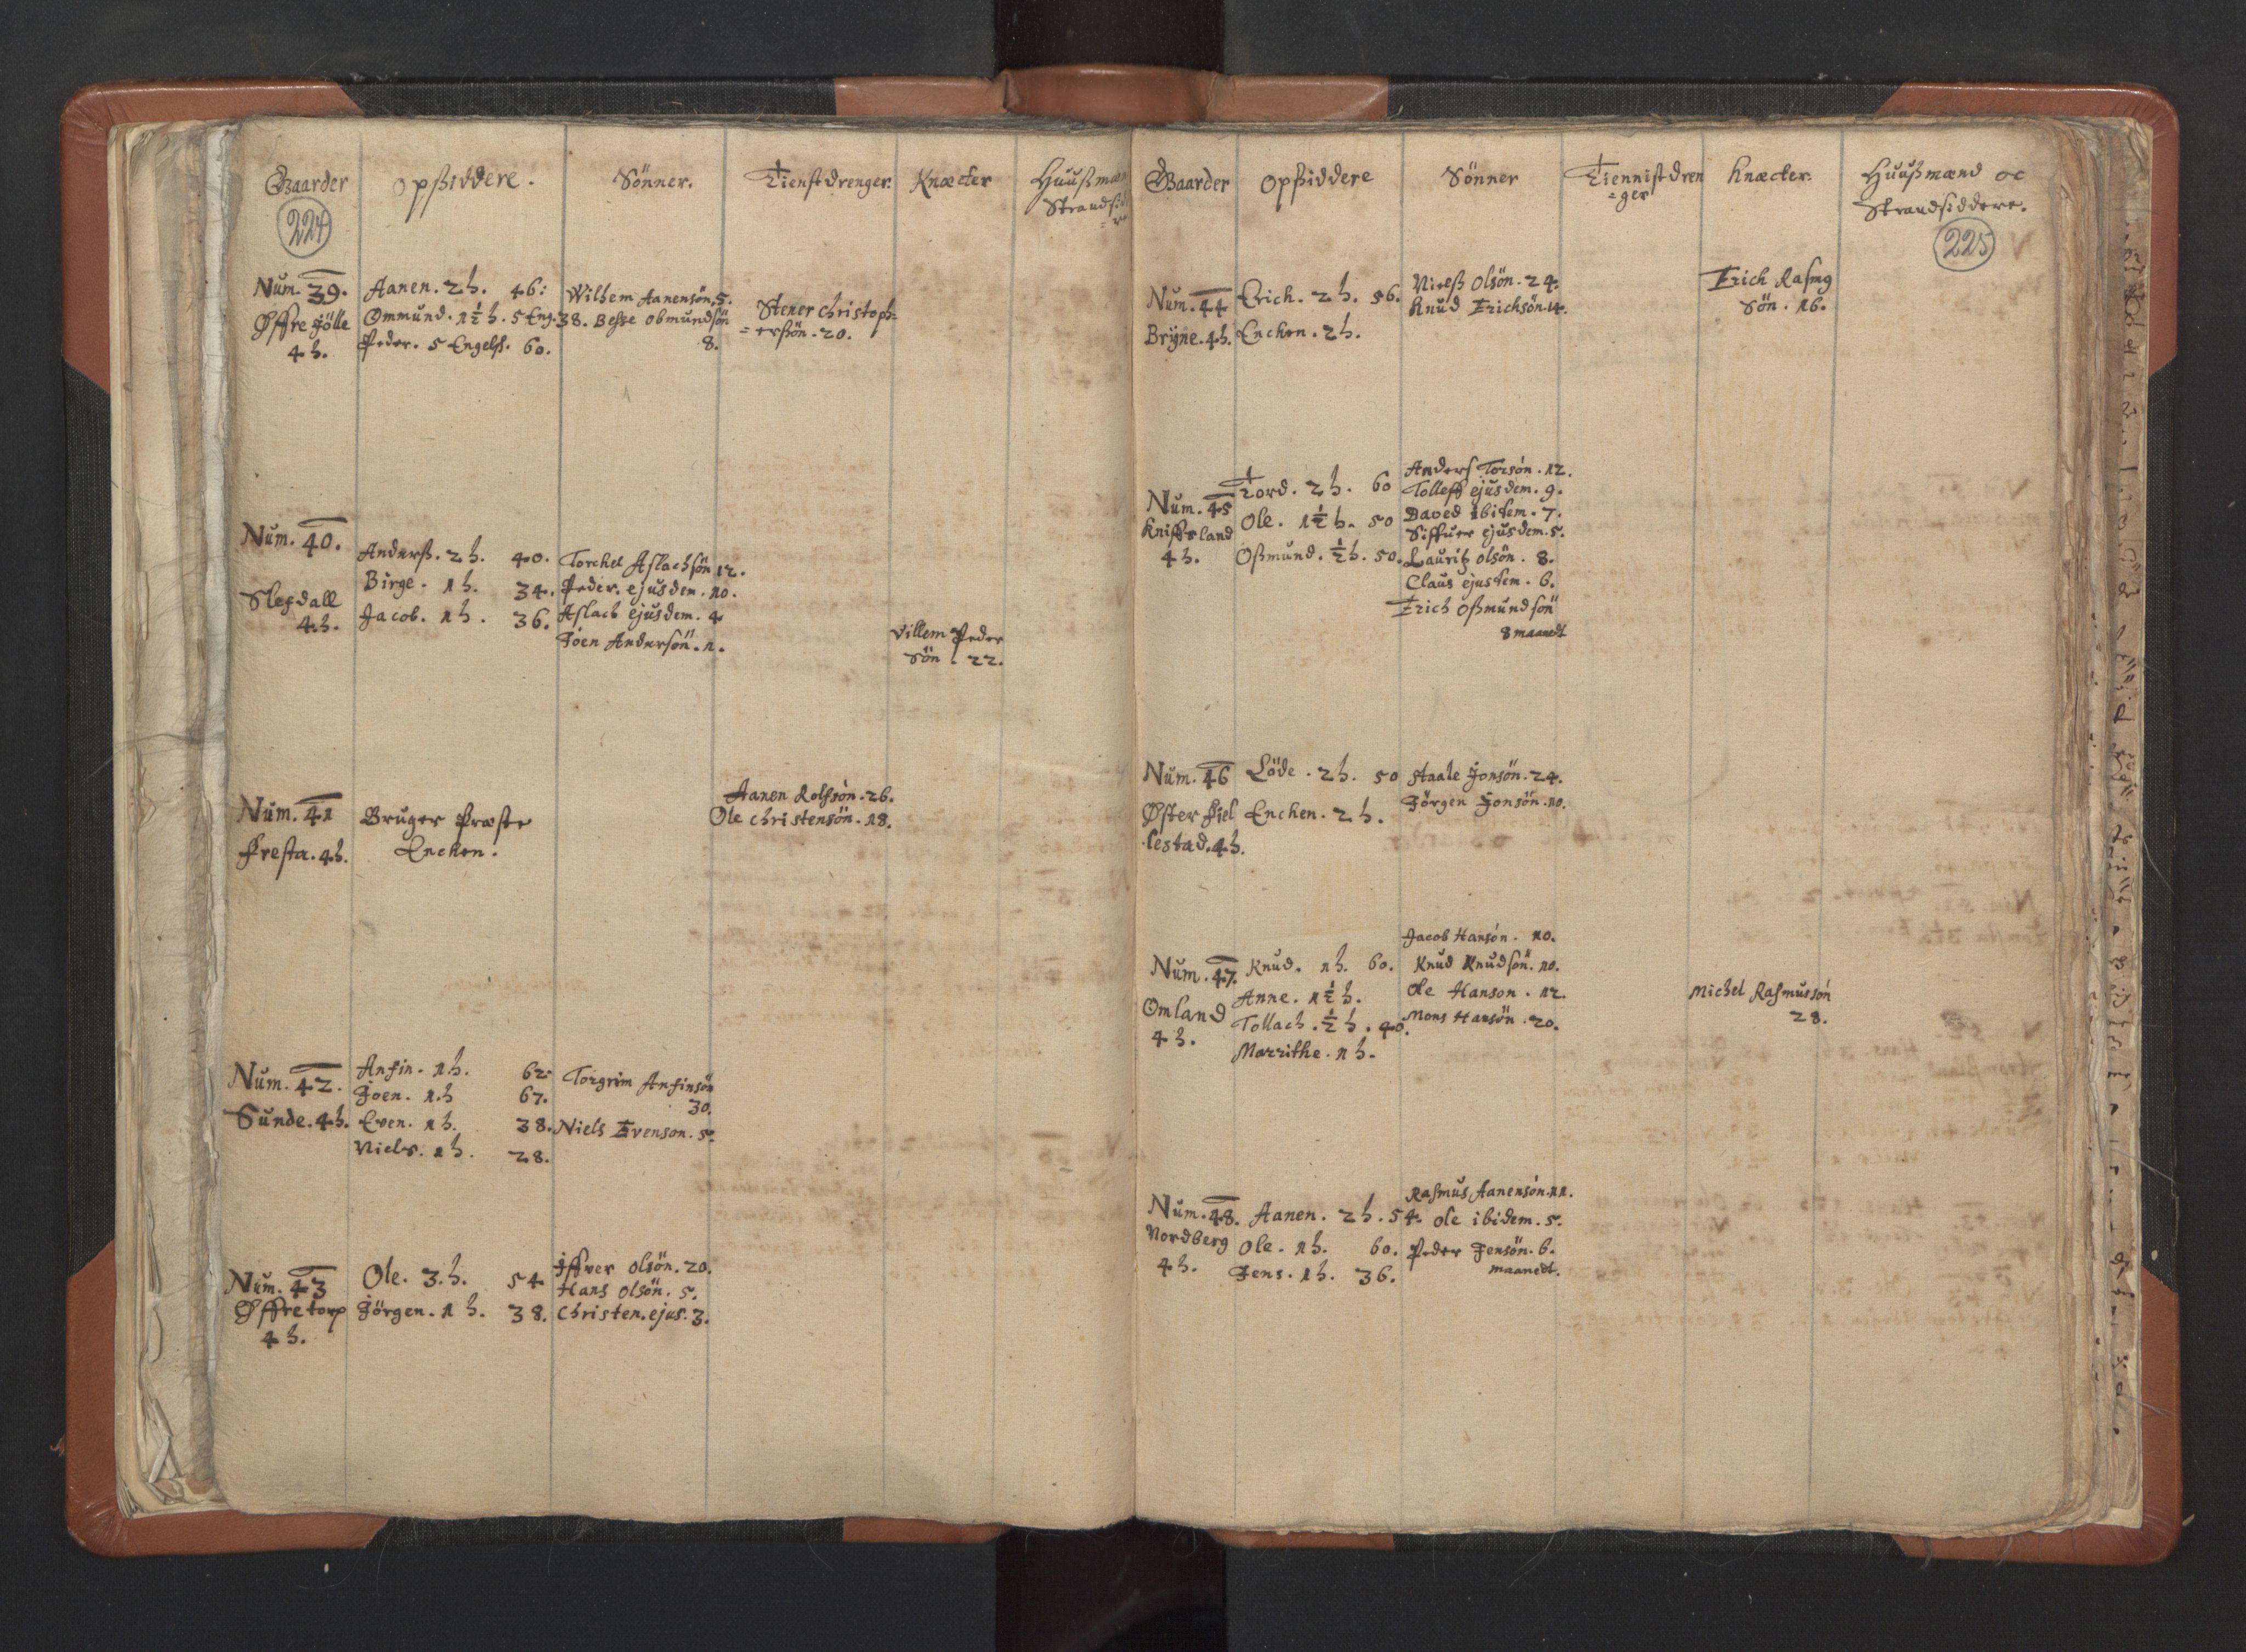 Gaarder opsiddere. Sönner. Tienstdrenger. Knæcter Huuszmæn
Strandsid
=re
224
Num. 39. Aanen. 2 h. 46: Wilhem Aanensön. 5.
Øffre Jölle Ommund. 1½ h. 5 Eng. 38. Besse obmundsön Stener Christoph=
4 h. Peder. 5 Engelsk. 60. 8. =ersön. 20.
Num. 40.
Anders. 2 h. 40. Torchel Aslachsön 12.
Birge. 1 h. 34. Peder. ejusdem. 10.
Slefdall Jacob. 1 h. 36. Aslach ejusdem. 4
4 h. Joen Andersön. 1. Villem Peder
Sön. 22.
Aanen Rolfsön. 26.
Num. 41 Bruger Præste Ole Christensön. 18.
Fresta. 4 h. Enchen.
Num. 42. Anfin. 1 h. 62: Torgrim Anfinsön
Joen. 1 h 67. 30.
Sunde. 4 h. Even. 1 h. 38. Niels Evenson. 5.
Niels. 1 h. 28.
Iffver olsön. 20.
Num. 43 Ole. 3 h. 54 Hans olsön. 5.
Øffretorp Jörgen. 1 h. 38. Christen. ejus. 3.
4 h.
Gaarder opsiddere Sönner Tiennistdren Knæcter. Huuszmænd oc
=ger Strandsiddere.
225
Num. 44 Erich. 2 h. 56. Nielsz olsön. 24. Erich Rasmg
Knud Erichsön. 14. Sön. 16.
Brÿne. 4 h. Enchen. 2 h.
Anders Torsön. 12.
Num. 45 Tord. 2 h. 60 Tolleff ejusdem. 9.
Kniffsland Ole. 1½ h. 50 David ibidem. 7.
Siffuer ejusdem. 5.
4 h. Oszmund. ½ h. 50. Lauritz olsön. 8.
Claus ejusdem. 6.
Erich Oszmundsön
8 maanedt
Num. 46 Löde. 2 h. 50 Staale Jonsön. 24.
Øster fiel Enchen. 2 h. Jörgen Jonsön. 10.
lestad. 4 h.
Jacob Hansön. 10.
Num. 47. Knud. 1 h. 60. Knud Knudsön. 10.
Omland Anne. 1½ h. Ole Hanson. 12. Michel Rasmussön
4 h. Tollach. ½ h. 40. Mons Hansön. 20. 28.
Marrithe. 1 h.
Rasmus Aanensön. 11.
Num. 48. Aanen. 2 h. 54. Ole ibidem. 5.
Nordberg Ole. 1 h. 60. Peder Jensön. 6.
4 h. Jens. 1 h. 36. maanedt.